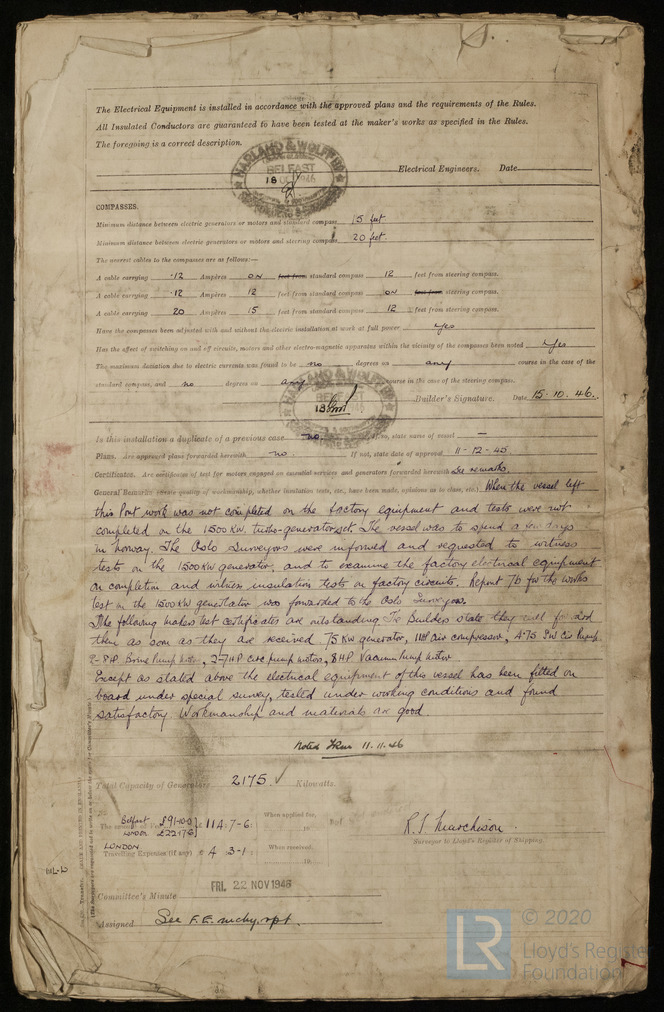 The Electrical Equipment is installed in accordance with the approved plans and the requirements of the Rules.
All Insulated Conductors are guaranteed to have been tested at the maker's works as specified in the Rules.
The foregoing is a correct description.
HARLAND & WOLFF LTD
BELFAST
18 OCT 1946
Electrical Engineers. Date
COMPASSES.
Minimum distance between electric generators or motors and standard compass 15 feet
Minimum distance between electric generators or motors and steering compass 20 feet.
The nearest cables to the compasses are as follows:—
A cable carrying .12 Ampères ON feet from standard compass 12 feet from steering compass.
A cable carrying .12 Ampères 12 feet from standard compass ON feet from steering compass.
A cable carrying 20 Ampères 15 feet from standard compass 12 feet from steering compass.
Have the compasses been adjusted with and without the electric installation at work at full power Yes
Has the effect of switching on and off circuits, motors and other electro-magnetic apparatus within the vicinity of the compasses been noted Yes
The maximum deviation due to electric currents was found to be no degrees on any course in the case of the
standard compass, and no degrees on any course in the case of the steering compass.
HARLAND & WOLFF LTD
BELFAST
Builder's Signature. Date 15.10.46.
Is this installation a duplicate of a previous case no. If so, state name of vessel —
Plans. Are approved plans forwarded herewith no. If not, state date of approval 11-12-45
Certificates. Are certificates of test for motors engaged on essential services and generators forwarded herewith See remarks.
General Remarks (State quality of workmanship, whether insulation tests, etc., have been made, opinions as to class, etc.) When the vessel left
this Port work was not completed on the factory equipment and tests were not
completed on the 1500 KW. turbo-generator set. The vessel was to spend a few days
in Norway. The Oslo Surveyors were informed and requested to witness
tests on the 1500KW generator, and to examine the factory electrical equipment
on completion and witness insulation tests on factory circuits. Report 7b for the works
test on the 1500KW generator was forwarded to the Oslo Surveyors.
The following makers test certificates are outstanding. The Builders state they will forward
them as soon as they are received 75KW generator, 11HP air compressor, 4-75 SW Circ Pump,
2-8HP Brine Pump motor, 2-7HP circ pump motors, 8HP Vacuum Pump motor
Except as stated above the electrical equipment of this vessel has been fitted on
board under special survey, tested under working conditions and found
satisfactory. Workmanship and materials are good.
Noted 11.11.46
Total Capacity of Generators 2175 ✓ Kilowatts.
Belfast £91-10-0
London £22-17-6
£ 114:7-6:
When applied for,
19
LONDON
Travelling Expenses (if any) £ 4:3-1:
When received,
19
R.J. Murchison.
Surveyor to Lloyd's Register of Shipping.
Committee's Minute FRI. 22 NOV 1946
Assigned See F.E. mchy. rpt.
LR
© 2020
Lloyd's Register
Foundation